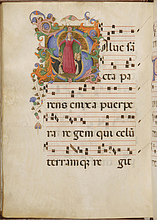 Salue sã
cta pa
rens enixa puerpe
ra regem qui celũ
terramque re git